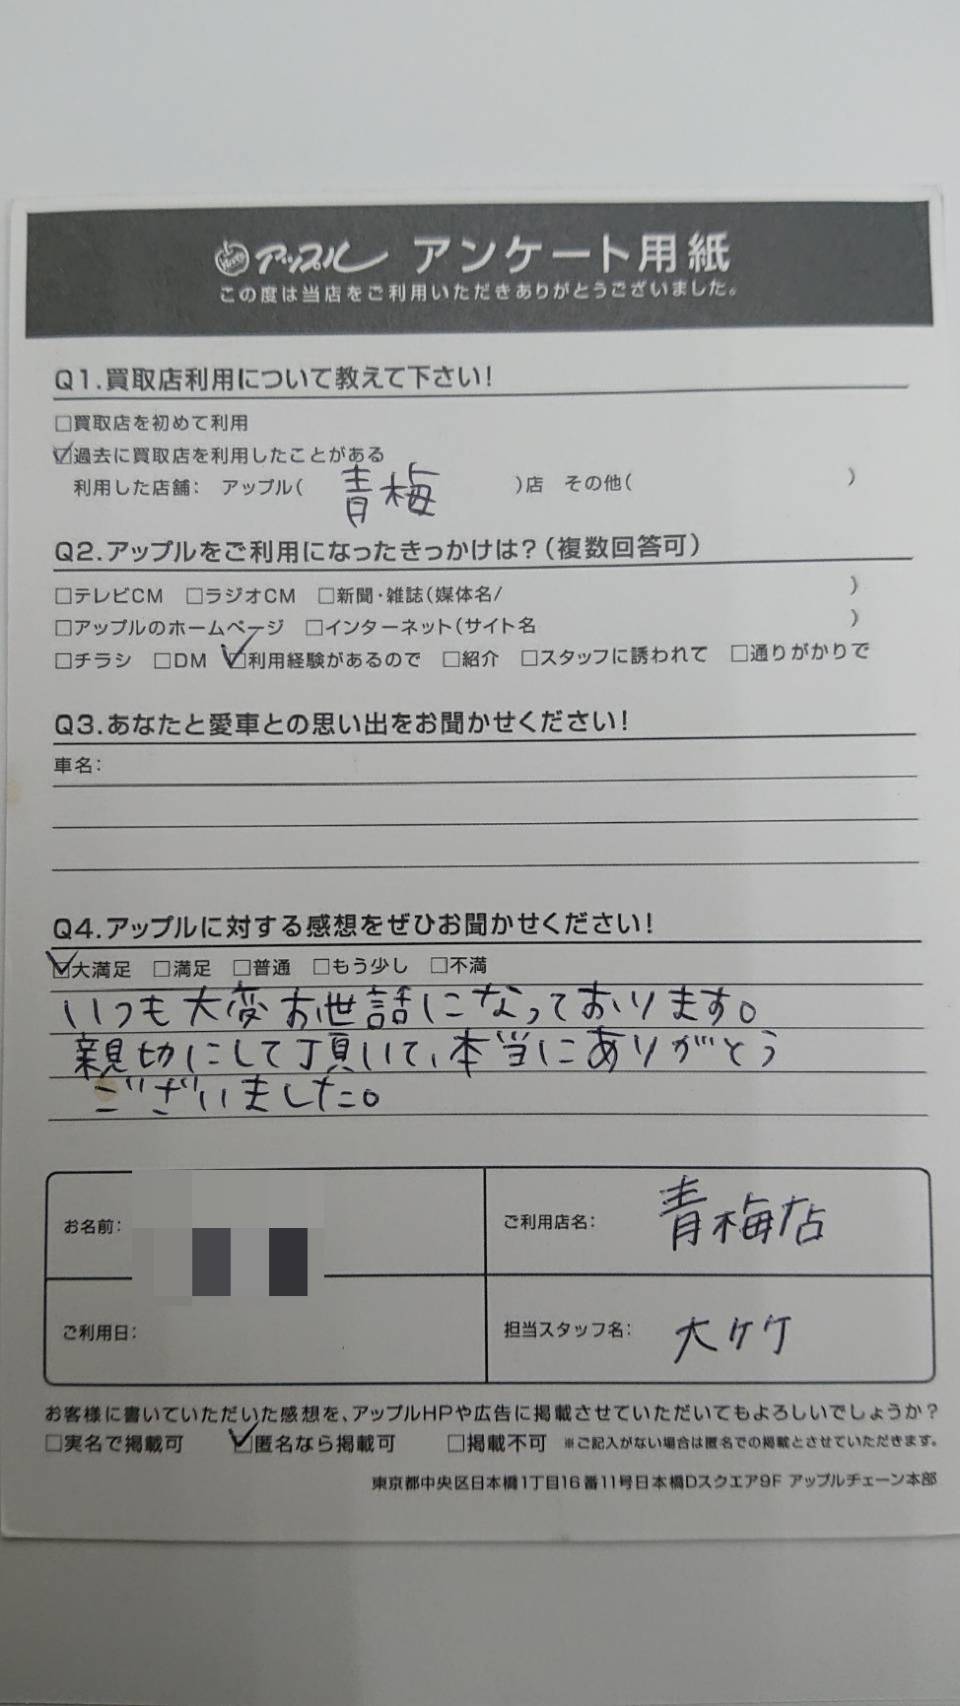 アップル アンケート用紙
この度は当店をご利用いただきありがとうございました。
Q1.買取店利用について教えて下さい!
□買取店を初めて利用
☑過去に買取店を利用したことがある
利用した店舗: アップル( 青梅 )店 その他( )
Q2.アップルをご利用になったきっかけは?(複数回答可)
□テレビCM □ラジオCM □新聞・雑誌(媒体名/ )
□アップルのホームページ □インターネット(サイト名 )
□チラシ □DM ☑利用経験があるので □紹介 □スタッフに誘われて □通りがかりで
Q3.あなたと愛車との思い出をお聞かせください!
車名:
Q4.アップルに対する感想をぜひお聞かせください!
☑大満足 □満足 □普通 □もう少し □不満
いつも大変お世話になっております。
親切にして頂いて、本当にありがとう
ございました。
お名前:
ご利用店名: 青梅店
ご利用日:
担当スタッフ名: 大竹
お客様に書いていただいた感想を、アップルHPや広告に掲載させていただいてもよろしいでしょうか?
□実名で掲載可 ☑匿名なら掲載可 □掲載不可 ※ご記入がない場合は匿名での掲載とさせていただきます。
東京都中央区日本橋1丁目16番11号日本橋Dスクエア9F アップルチェーン本部